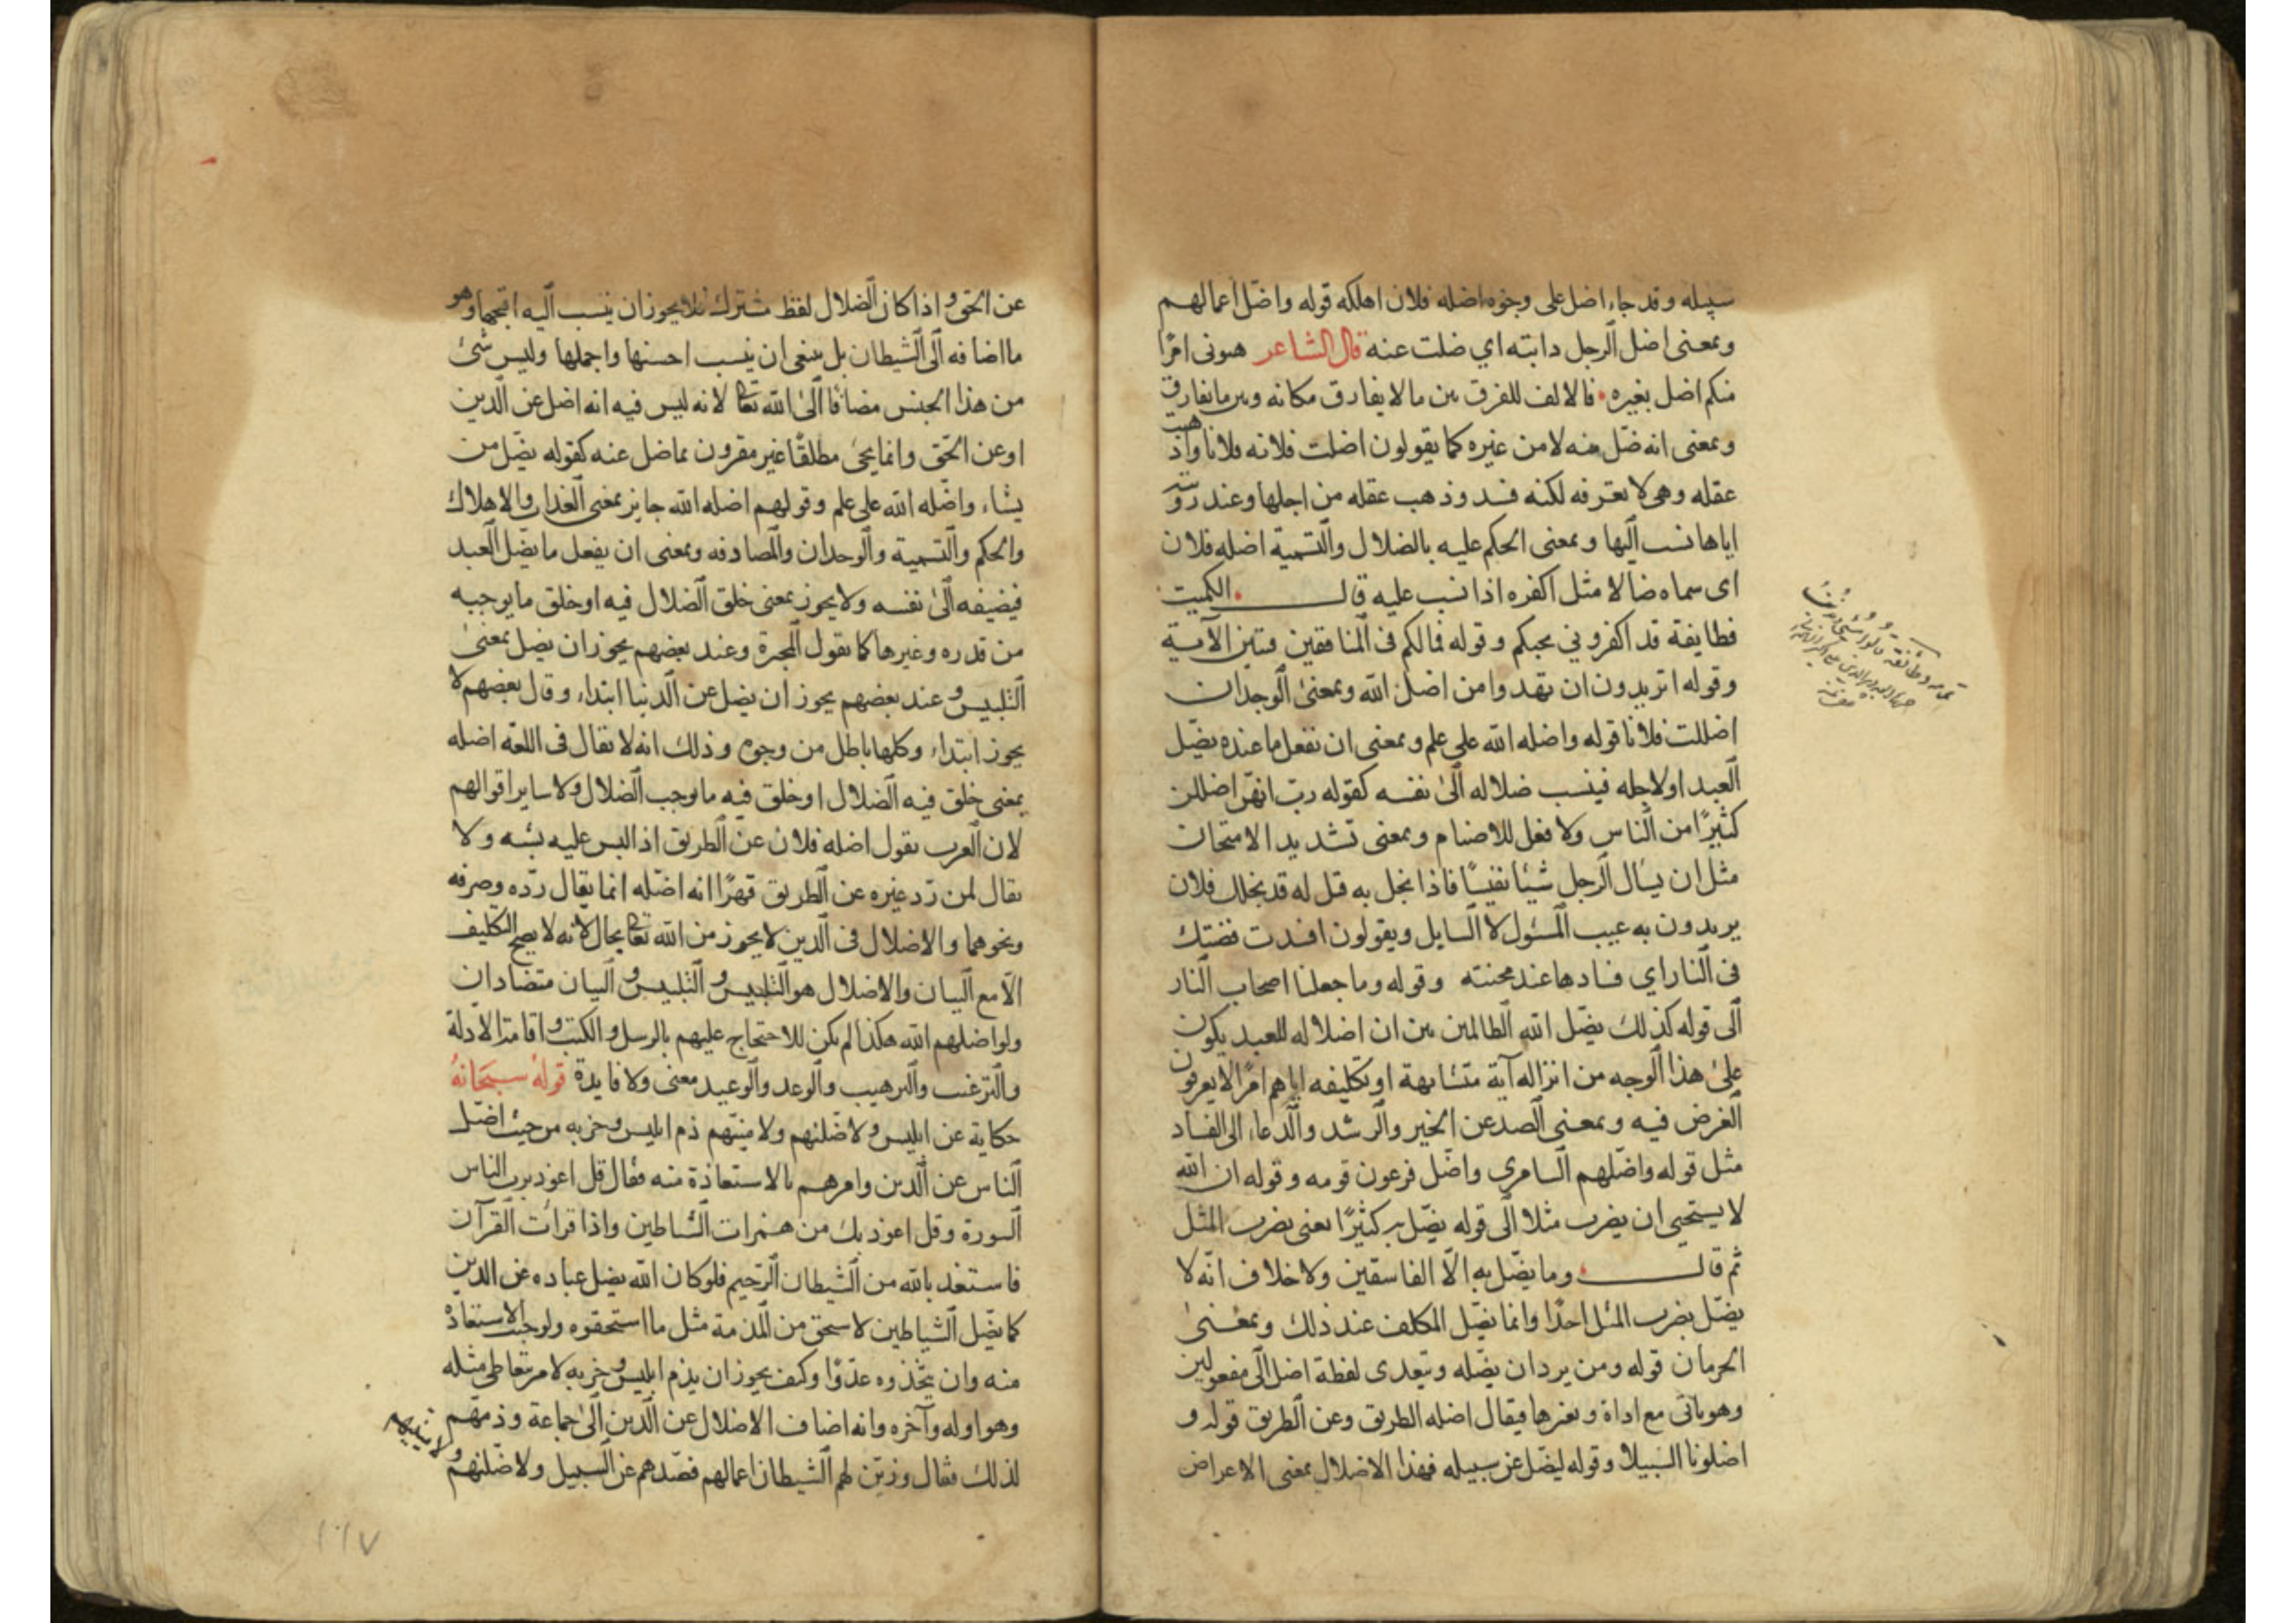 سبيله وقد جاء اضل على وجوه اضله فلان اهلكه قوله واضل اعمالهم
وبمعنى اضل الرجل دابته اي ضلت عنه قال الشاعر هبونى امرًا
منكم اضل بغيره فالالف للفرق بين ما لا يفارق مكانه وبين ما يفارق
وبمعنى انه ضل منه لا من غيره كما يقولون اضلت فلانه فلانا واذهبت
عقله وهى لا تعرفه لكنه فسد وذهب عقله من اجلها وعند
اياها نسب اليها وبمعنى الحكم عليه بالضلال والتسمية اضله فلان
اى سماه ضالا مثل اكفره اذا نسب عليه قال الكميت
فطايفة قد اكفروني بحبكم وقوله فمالكم فى المنافقين فئتين الآية
وقوله اتريدون ان تهدوا من اضل الله وبمعنى الوجدان
اضللت فلانا قوله واضله الله على علم وبمعنى ان تفعل ما عنده يضل
العبد او لاجله فينسب ضلاله الى نفسه كقوله رب انهن اضللن
كثيرًا من الناس ولا فعل للاصنام وبمعنى تشديد الامتحان
مثل ان يسال الرجل شيئا نفيسًا فاذا بخل به قيل له قد بخلك فلان
يريدون به عيب المسئول لا السايل ويقولون افسدت فضتك
فى النار اي فسادها عند محنته وقوله وما جعلنا اصحاب النار
الى قوله كذلك يضل الله الظالمين بين ان اضلاله للعبد يكون
على هذا الوجه من انزاله آية متشابهة او تكليفه اياهم امرًا لا يعرفون
الغرض فيه وبمعنى الصد عن الخير والرشد والدعاء الى الفساد
مثل قوله واضلهم السامري واضل فرعون قومه وقوله ان الله
لا يستحيي ان يضرب مثلا الى قوله يضل به كثيرًا يعنى يضرب المثل
ثم قال وما يضل به الا الفاسقين ولا خلاف انه لا
يضل بضرب المثل احدًا وانما يضل المكلف عند ذلك وبمعنى
الحرمان قوله ومن يرد ان يضله ويتعدى لفظة اضل الى مفعولين
وهو ياتى مع اداة وبغيرها فيقال اضله الطريق وعن الطريق قوله و
اضلونا السبيلا وقوله ليضل عن سبيله فهذا الاضلال بمعنى الاعراض
عن الحق واذا كان الضلال لفظ مشترك فلا يجوز ان ينسب اليه اقبحها وهو
ما اضافه الى الشيطان بل ينبغى ان ينسب احسنها واجملها وليس شئ
من هذا الجنس مضافا الى الله تعا لانه ليس فيه انه اضل عن الدين
او عن الحق وانما يجئ مطلقًا غير مقرون بما ضل عنه كقوله يضل من
يشاء واضله الله على علم وقولهم اضله الله جايز بمعنى العذاب والاهلاك
والحكم والتسمية والوجدان والمصادفه وبمعنى ان يفعل ما يضل العبد
فيضيفه الى نفسه ولا يجوز بمعنى خلق الضلال فيه او خلق ما يوجبه
من قدره وغيرها كما تقول المجبرة وعند بعضهم يجوز ان يضل بمعنى
التلبيس وعند بعضهم يجوز ان يضل عن الدنيا ابتداء وقال بعضهم لا
يجوز ابتداء وكلها باطل من وجوه وذلك انه لا يقال فى اللغة اضله
بمعنى خلق فيه الضلال او خلق فيه ما يوجب الضلال ولا ساير اقوالهم
لان العرب تقول اضله فلان عن الطريق اذا لبس عليه ولا
يقال لمن رد غيره عن الطريق قهرًا انه اضله انما يقال رده وصرفه
ونحوهما والاضلال فى الدين لا يجوز من الله تعا بحال لانه لا يصح التكليف
الا مع البيان والاضلال هو التلبيس والتلبيس والبيان متضادان
ولو اضلهم الله هكذا لم يكن للاحتجاج عليهم بالرسل والكتب واقامة الادلة
والترغيب والترهيب والوعد والوعيد معنى ولا فايدة قوله سبحانه
حكاية عن ابليس ولاضلنهم ولامنينهم ذم ابليس وحزبه من حيث اضل
الناس عن الدين وامرهم بالاستعاذة منه فقال قل اعوذ برب الناس
السورة وقل اعوذ بك من همزات الشياطين واذا قرات القرآن
فاستعذ بالله من الشيطان الرجيم فلو كان الله يضل عباده عن الدين
كما يضل الشياطين لاستحق من المذمة مثل ما استحقوه ولوجب الاستعاذة
منه وان يتخذوه عدوًا وكيف يجوز ان يذم ابليس وحزبه لامر يتعاطى مثله
وهو اوله وآخره وانه اضاف الاضلال عن الدين الى جماعة وذمهم
لذلك فقال وزين لهم الشيطان اعمالهم فصدهم عن السبيل ولاضلنهم
ولامنينهم
١٦٧